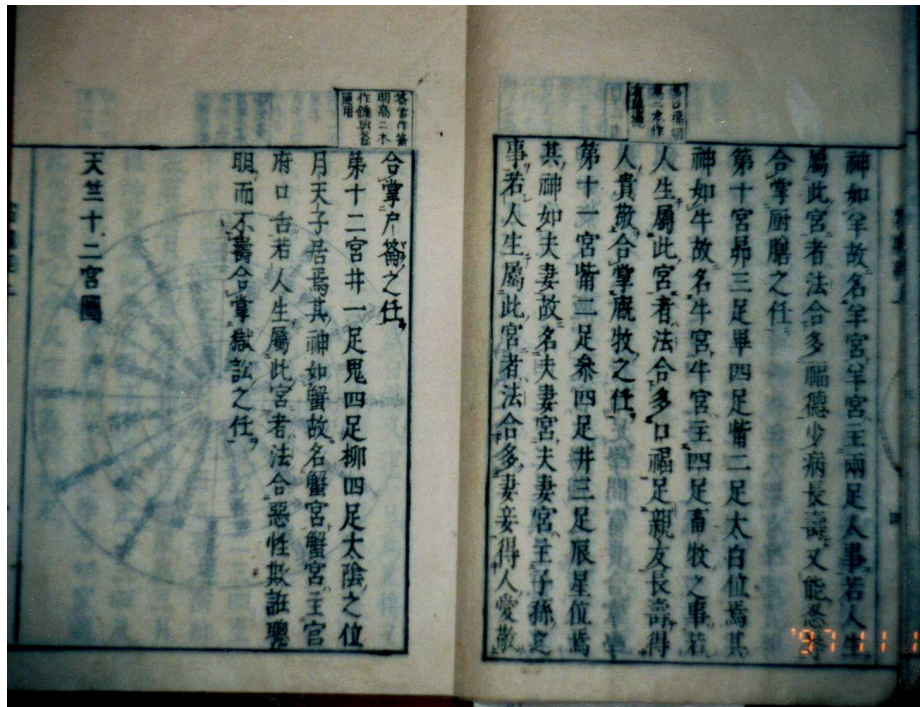 神如羊故名羊宮羊宮主兩足人事若人生
屬此宮者法合多福德少病長壽又能忍辱
合掌厨膳之任
第十宮昴三足畢四足觜二足太白位焉其
神如牛故名牛宮牛宮主四足畜牧之事若
人生屬此宮者法合多口福足親友長壽得
人貴敬合掌廐牧之任
第十一宮觜二足參四足井三足辰星位焉
其神如夫妻故名夫妻宮夫妻宮主子孫之
事若人生屬此宮者法合多妻妾得人愛敬
合掌户籥之任
第十二宮井一足鬼四足柳四足太陰之位
月天子居焉其神如蟹故名蟹宮蟹宮主官
府口舌若人生屬此宮者法合惡性欺誑聰
明而不壽合掌獄訟之任
天竺十二宮圖
'97 11 1